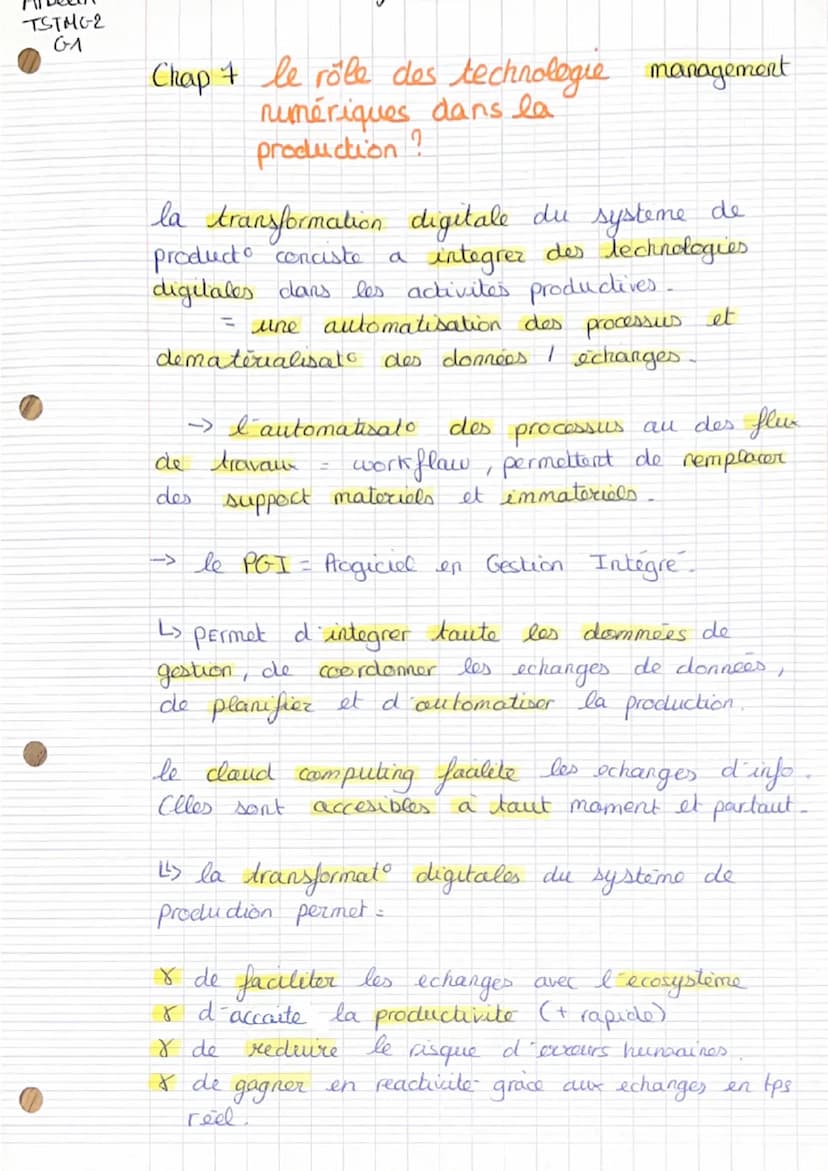 TSTMG2
G1
Chap 7 le rôle des technologie management
numériques dans la
production ?
la transformation digitale du systeme de
product° conciste a integrer des technologies
digitales dans les activités productives.
= une automatisation des processus et
dematérialisat° des données / échanges.
-> l'automatisat° des processus au des flux
de travaux = workflow, permettant de remplacer
des support materiels et immateriels.
-> le PGI = Progiciel en Gestion Intégré.
↳ permet d'integrer toute les données de
gestion, de coordonner les echanges de données,
de planifier et d'automatiser la production.
le cloud computing facilite les echanges d'info.
Elles sont accesibles à tout moment et partout.
↳ la transformat° digitales du système de
production permet :
ɤ de faciliter les echanges avec l'ecosystème
ɤ d'accoite la productivité (+ rapide)
ɤ de reduire le risque d'erreurs humaines.
ɤ de gagner en reactivité grace aux echanges en tps
réel.